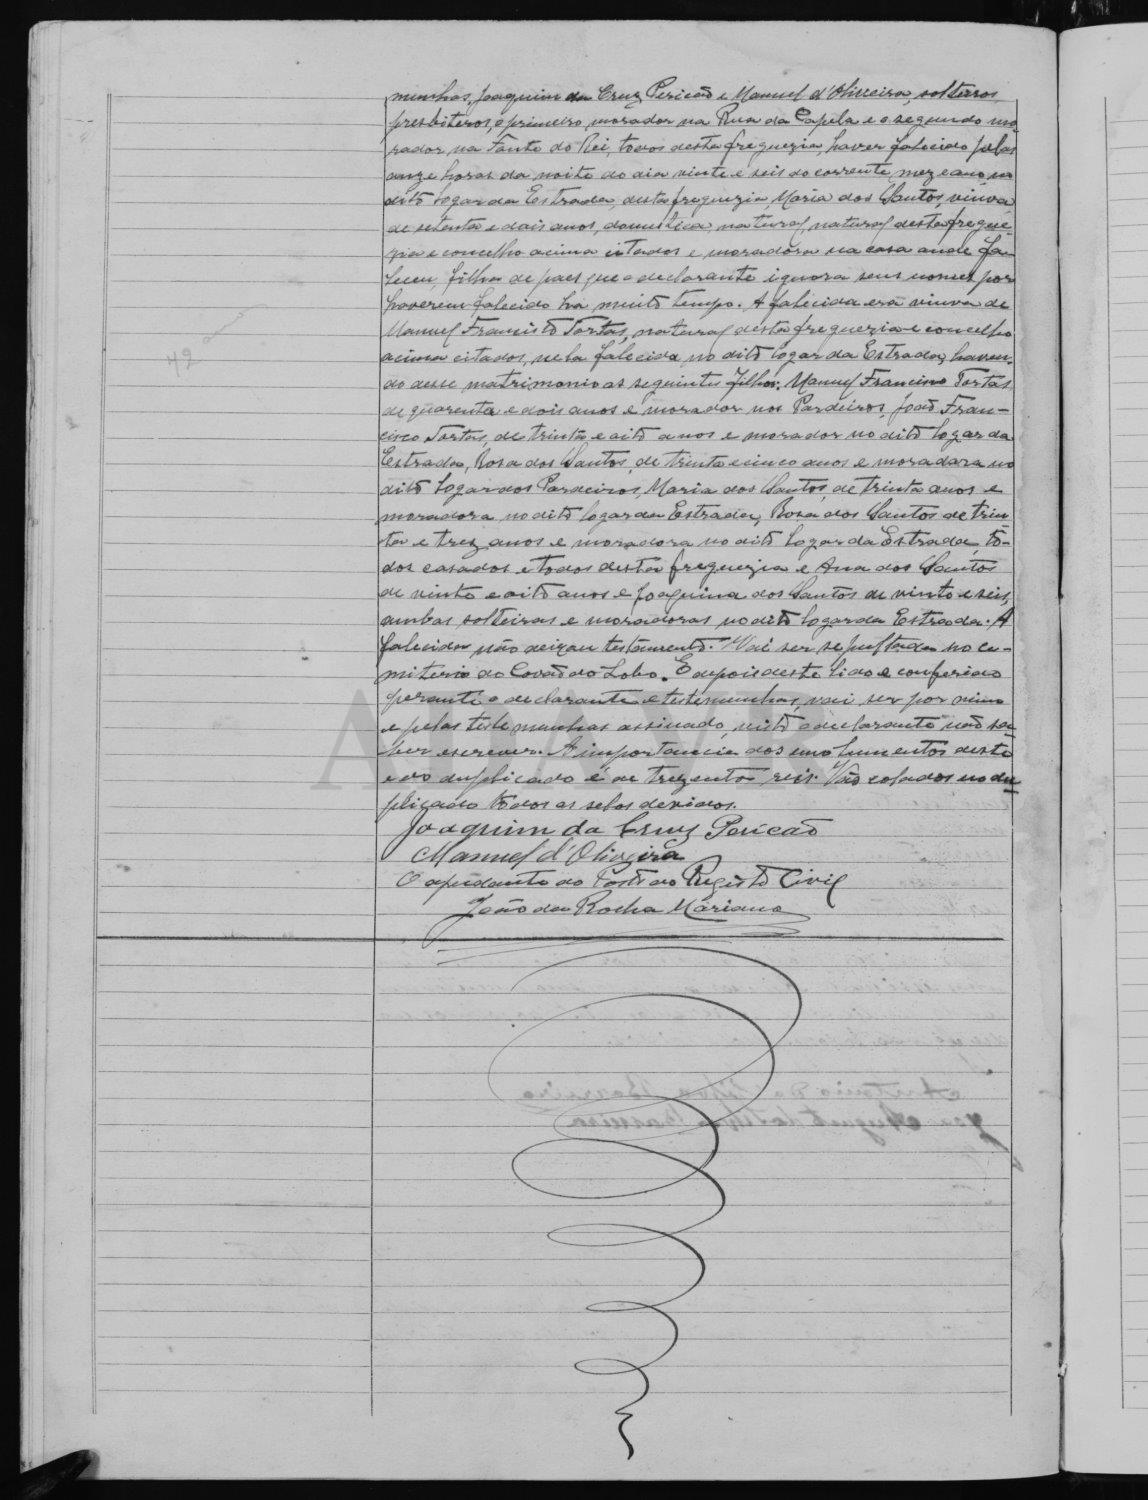 munhas, Joaquim da Cruz Pericão e Manuel d'Oliveira, solteiros,
presbiteros, o primeiro, morador na Rua da Capela e o segundo mo-
rador na Fonte do Rei, todos desta freguezia, haver falecido pelas
onze horas da noite do dia vinte e seis do corrente mez e ano, no
dito logar da Estrada, desta freguezia, Maria dos Santos, viuva
de setenta e dois anos, domestica, natural, natural desta fregue-
zia e concelho acima citados e moradora na casa onde fa-
leceu, filha de paes que o declarante ignora seus nomes por
haverem falecido ha muito tempo. A falecida era viuva de
Manuel Francisco Tortas, natural desta freguezia e concelho
acima citados, nela falecida no dito logar da Estrada, haven-
do desse matrimonio as seguintes filhos: Manuel Francisco Tortas
de quarenta e dois anos e morador nos Pardeiros, João Fran-
cisco Tortas, de trinta e oito anos e morador no dito logar da
Estrada, Rosa dos Santos, de trinta e cinco anos e moradora no
dito logar dos Pardeiros, Maria dos Santos, de trinta anos e
moradora no dito logar da Estrada, Rosa dos Santos de trin-
ta e trez anos e moradora no dito logar da Estrada, to-
dos casados e todos desta freguezia e Ana dos Santos
de vinte e oito anos e Joaquina dos Santos de vinte e seis,
ambas solteiras e moradoras no dito logar da Estrada. A
falecida não deixou testamento. Vai ser sepultada no ce-
miterio do Covão do Lobo. E depois deste lido e conferido
perante o declarante e testemunhas, vai ser por mim
e pelas testemunhas assinado, visto o declarante não sa-
ber escrever. A importancia dos emolumentos deste
e do duplicado é de trezentos reis. Vão colados no du-
plicado todos os selos devidos.
Joaquim da Cruz Pericão
Manuel d'Oliveira
O ajudante do Posto do Registo Civil
João da Rocha Mariano
42